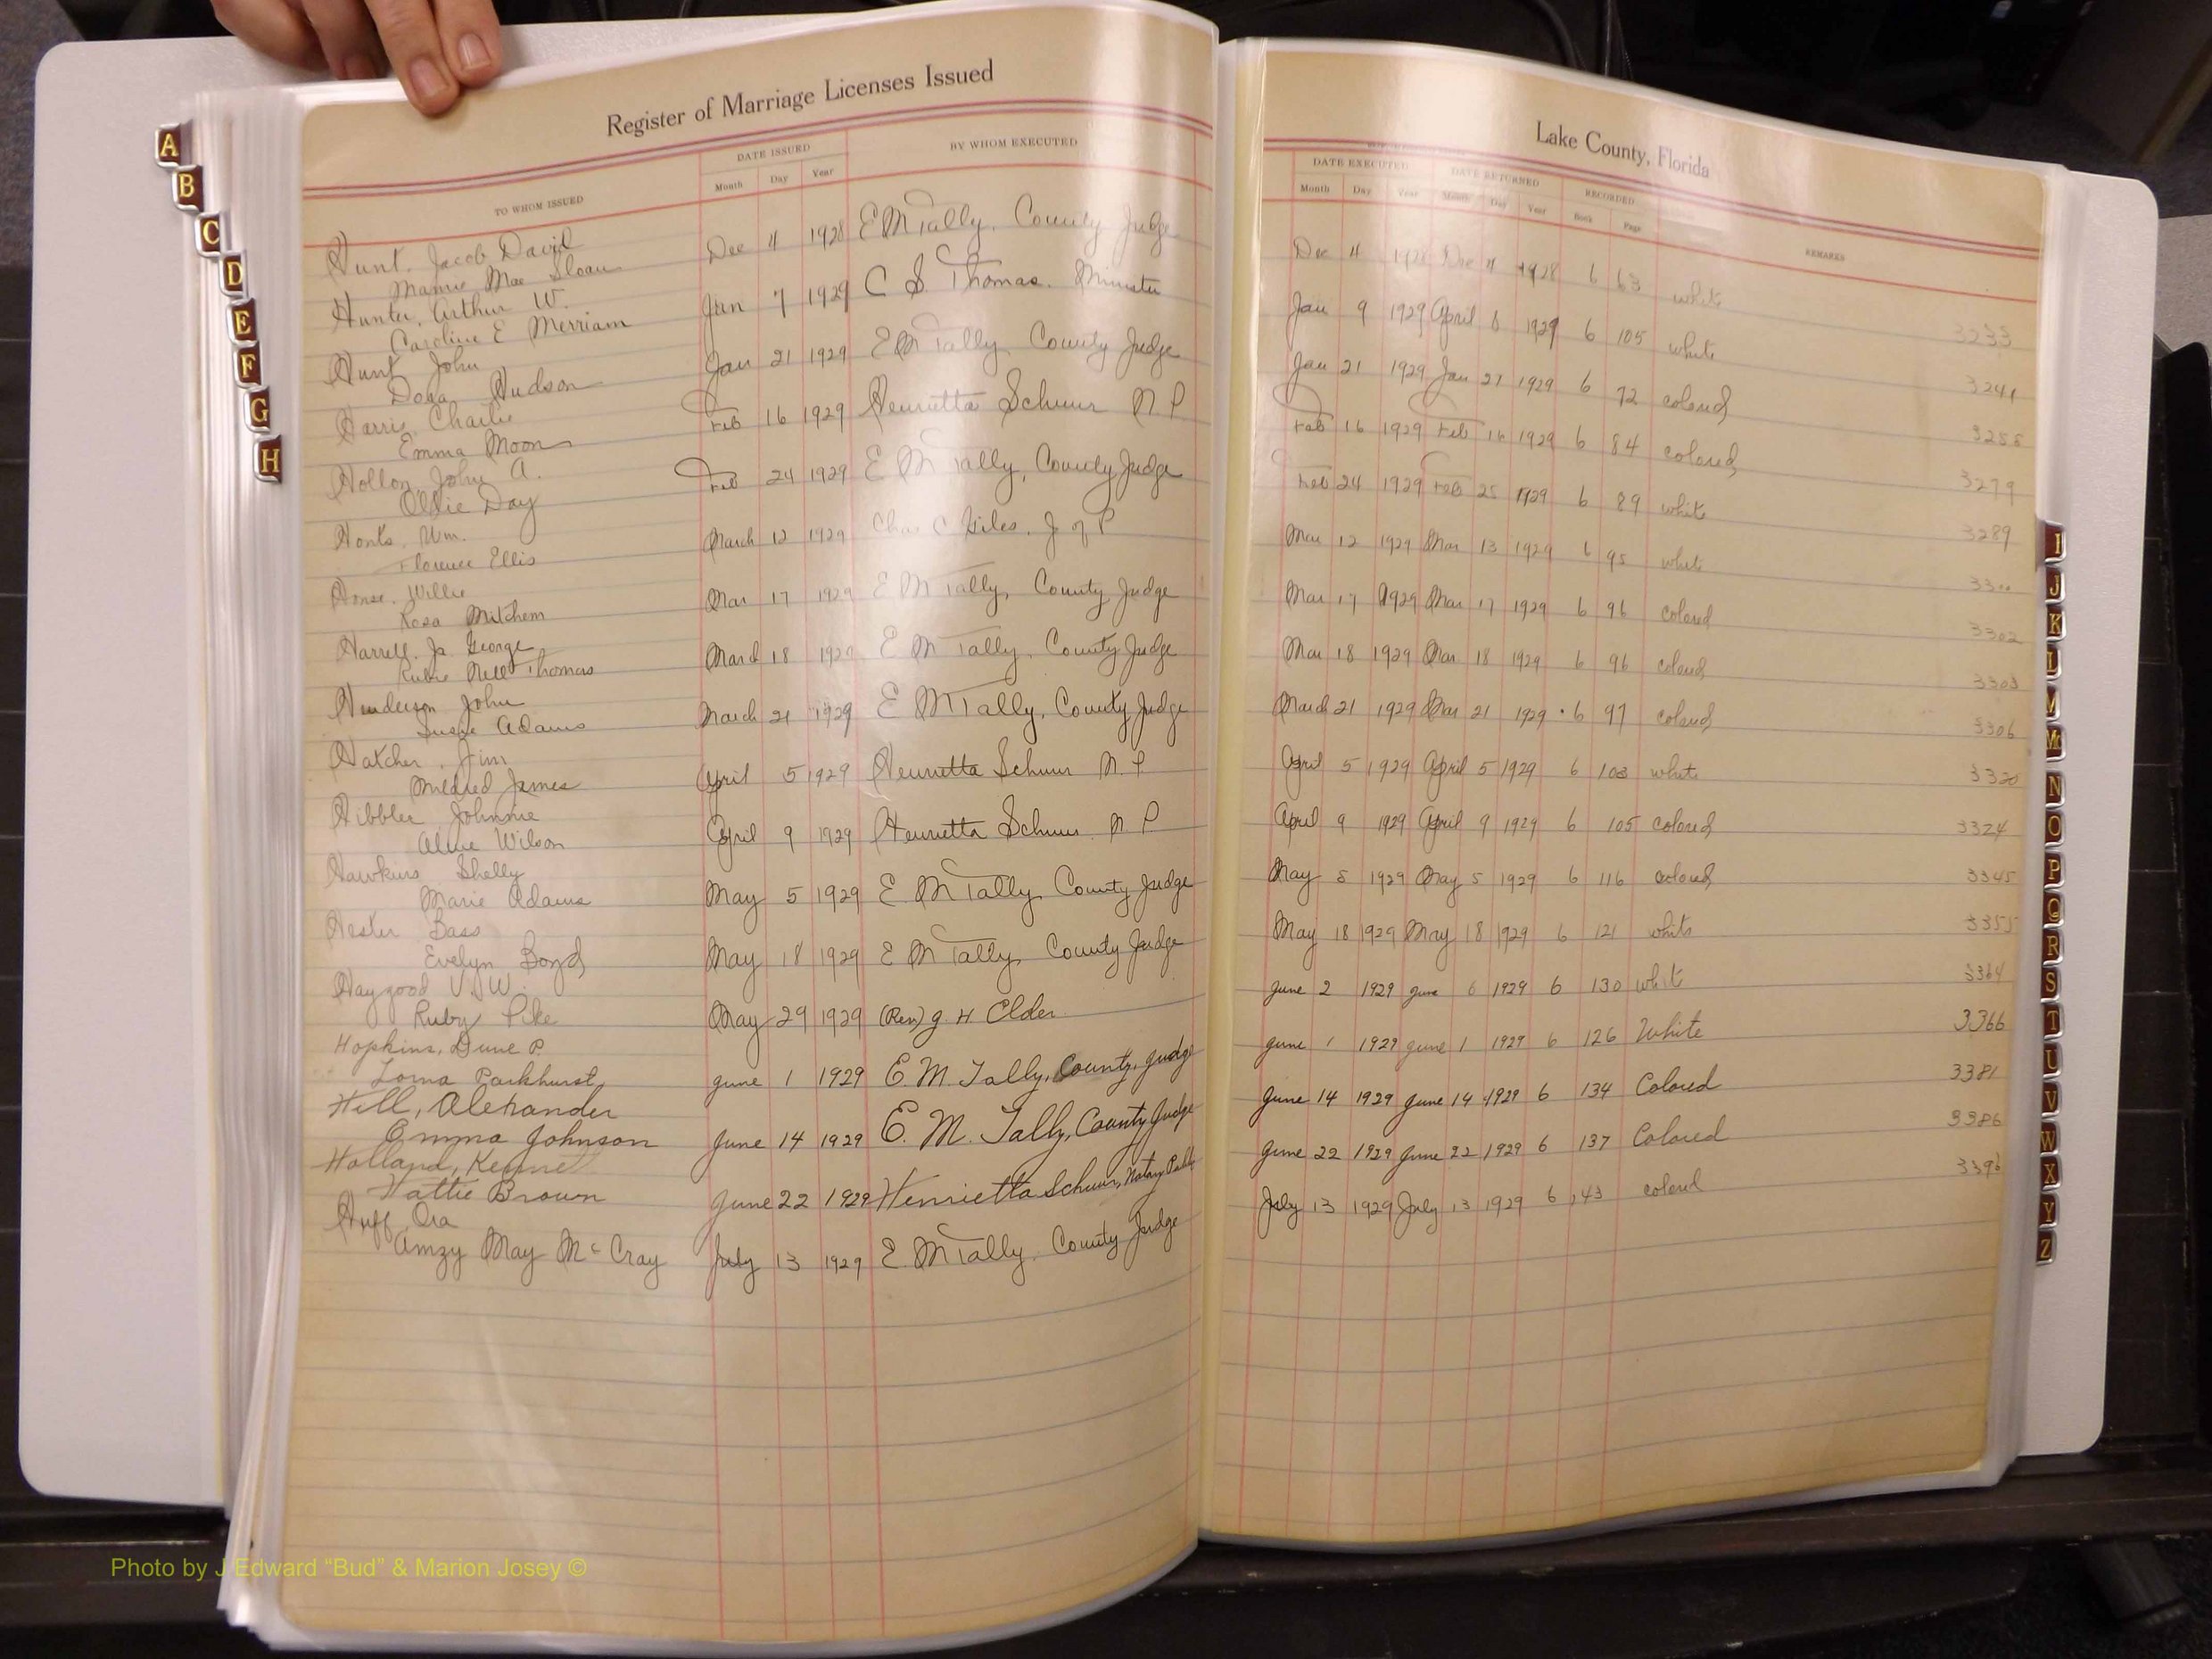 Register of Marriage Licenses Issued
TO WHOM ISSUED DATE ISSUED BY WHOM EXECUTED
Month Day Year
Hunt, Jacob David
Mamie Mae Sloan Dec 4 1928 E M Tally, County Judge
Hunter, Arthur W.
Caroline E Merriam Jan 7 1929 C S Thomas. Minister
Hunt John
Dora Hudson Jan 21 1929 E M Tally County Judge
Harris, Charlie
Emma Moon Feb 16 1929 Henrietta Schuur N P
Hollon, John A.
Ollie Day Feb 24 1929 E M Tally, County Judge
Honts, Wm.
Florence Ellis March 12 1929 Chas C Giles, J of P
Willie
Rosa Mitchem Mar 17 1929 E M Tally, County Judge
Harrell, Jr George
Rubie Nell Thomas March 18 1929 E M Tally, County Judge
Henderson John
Susie Adams March 21 1929 E M Tally, County Judge
Hatcher, Jim
Mildred James April 5 1929 Henrietta Schuur N. P
Hibbler Johnnie
Wilson April 9 1929 Henrietta Schuur N P
Hawkins Shelly
Marie Adams May 5 1929 E M Tally County Judge
Hester Bass
Evelyn Boyd May 18 1929 E M Tally, County Judge
Haygood V. W.
Ruby Pike May 29 1929 (Rev) G. H Elder
Hopkins, P.
Lorna Parkhurst June 1 1929 E. M. Tally, County, Judge
Hill, Alexander
Emma Johnson June 14 1929 E. M. Tally, County Judge
Holland,
Hattie Brown June 22 1929 Henrietta Schuur, Notary Public
Huff Ora
Amzy May McCray July 13 1929 E M Tally. County Judge
Lake County, Florida
DATE EXECUTED DATE RETURNED RECORDED REMARKS
Month Day Year Month Day Year Book Page
Dec 4 1928 Dec 4 1928 6 63 white 3233
Jan 9 1929 April 8 1929 6 105 white 3241
Jan 21 1929 Jan 21 1929 6 72 colored
Feb 16 1929 Feb 16 1929 6 84 colored 3279
Feb 24 1929 Feb 25 1929 6 89 white 3289
Mar 12 1929 Mar 13 1929 6 95 white
Mar 17 1929 Mar 17 1929 6 96 colored 3302
Mar 18 1929 Mar 18 1929 6 96 colored 3303
March 21 1929 Mar 21 1929 6 97 colored 3306
April 5 1929 April 5 1929 6 103 white 3320
April 9 1929 April 9 1929 6 105 colored 3324
May 5 1929 May 5 1929 6 116 colored 3345
May 18 1929 May 18 1929 6 121 white 3355
June 2 1929 June 6 1929 6 130 white 3364
June 1 1929 June 1 1929 6 126 White 3366
June 14 1929 June 14 1929 6 134 Colored 3381
June 22 1929 June 22 1929 6 137 Colored 3386
July 13 1929 July 13 1929 6 143 colored 3396
A
B
C
D
E
F
G
H
I
J
K
L
M
Mc
N
O
P
Q
R
S
T
U
V
W
X
Y
Z
Photo by J Edward “Bud” & Marion Josey ©